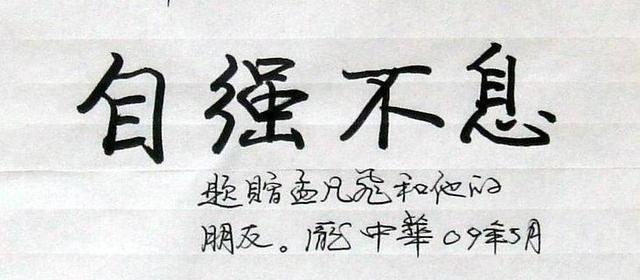 自强不息
题赠孟凡飛和他的
朋友。龍中華09年5月